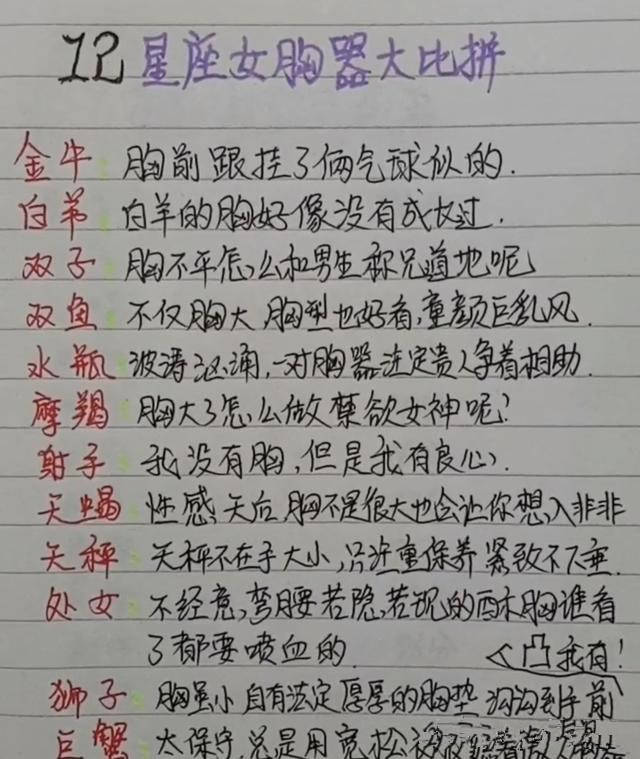 12星座女胸器大比拼
金牛：胸前跟挂了俩气球似的.
白羊：白羊的胸好像没有成长过.
双子：胸不平怎么和男生称兄道地呢
双鱼：不仅胸大,胸型也好看,童颜巨乳风.
水瓶：波涛汹涌,一对胸器注定贵人争着相助.
摩羯：胸大了怎么做禁欲女神呢?
射手：我没有胸,但是我有良心.
天蝎：性感天后,胸不是很大也会让你想入非非
天秤：天秤不在乎大小,只注重保养紧致不下垂.
处女：不经意,弯腰若隐若现的酥胸谁看
了都要喷血的.
<凸我有!
狮子：胸虽小自有法定厚厚的胸垫沟沟到手前
巨蟹：太保守,总是用宽松